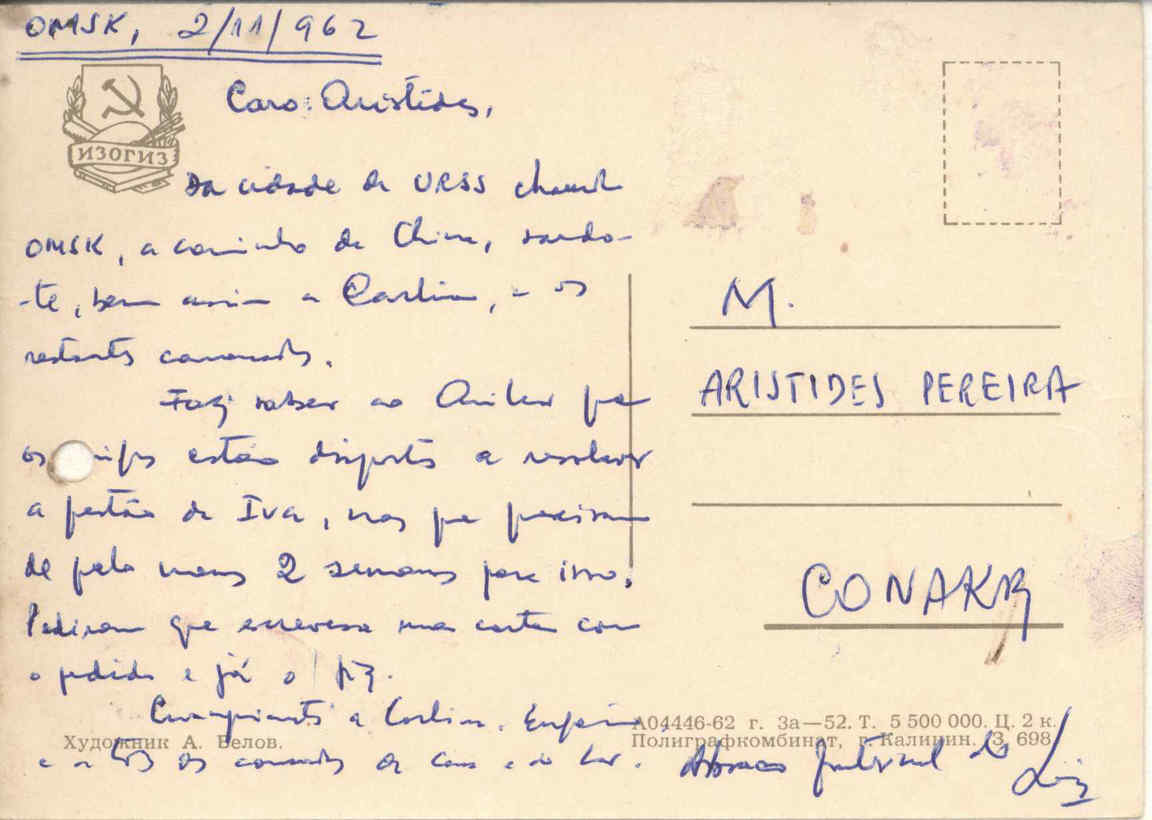 OMSK, 2/11/962
Caro Aristides,
ИЗОГИЗ
Da cidade da URSS chamada
OMSK, a caminho da China, saúdo-
-te, bem assim a Carlina, e os
restantes camaradas.
Faz saber ao Amílcar que
os estão dispostos a resolver
a questão da Iva, mas que precisam
de pelo menos 2 semanas para isso.
Pediram que escrevesse uma carta com
o pedido e já o fiz.
Cumprimentos a Carlina,
e a todos os camaradas da casa e do Lar. Abraço fraternal do
Luiz
M.
ARISTIDES PEREIRA
CONAKRY
Художник А. Белов.
А04446-62 г. За—52. Т. 5 500 000. Ц. 2 к.
Полиграфкомбинат, г. Калинин. З. 698